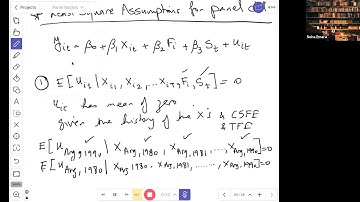 Projects
* Least Square Assumptions for panel d
Yit = β0 + β1 Xit + β2 Fi + β3 St + uit
① E[uit | Xi1, Xi2, ... XiT, Fi, St] = 0
uit has mean of zero
given the history of the X's & CSFE
& TFE
E[uArg,1990 | XArg,1980, XArg,1981, ..... XArg,1990] = 0
E[uArg,1980 | XArg,1980, XArg,1981, ......., XArg,1990] = 0
Noha Emara